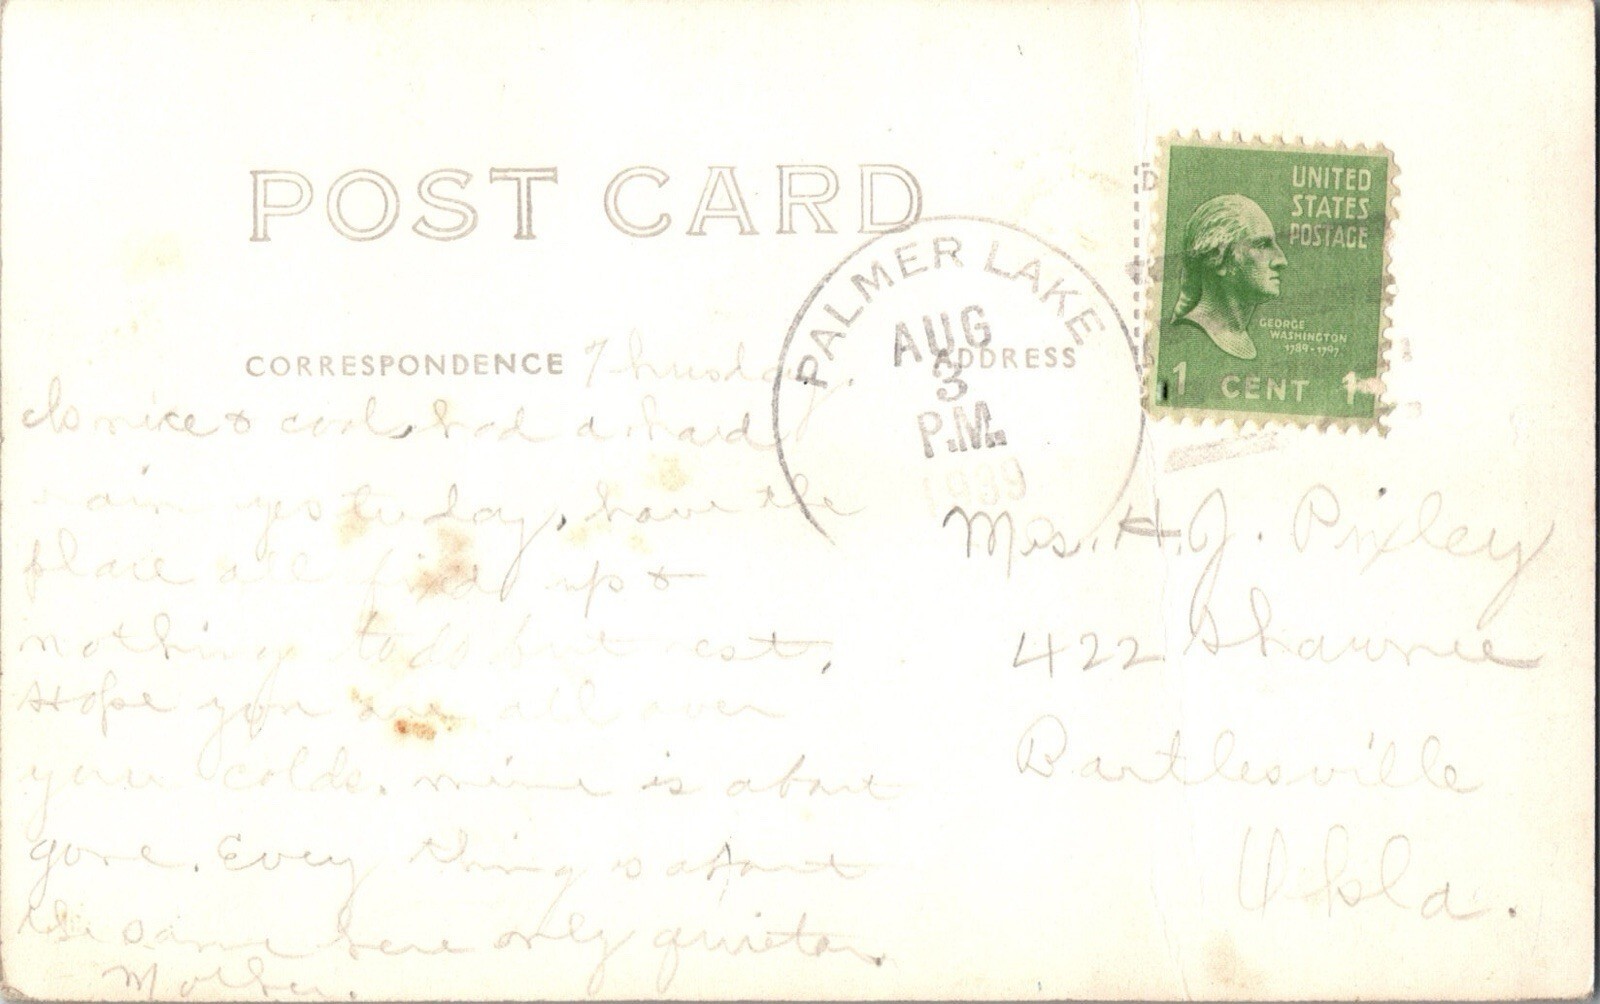 POST CARD
UNITED
STATES
POSTAGE
GEORGE
WASHINGTON
1789-1797
1 CENT 1
PALMER LAKE
AUG
3
P.M.
1939
CORRESPONDENCE
ADDRESS
Thursday.
Is nice & cool, had a hard
rain yesturday, have the
place all fixed up &
nothing to do but rest.
Hope you are all over
your colds. mine is about
gone. Every thing is about
the same here only quieter.
Mother.
Mrs. H. J. Pixley
422 Shawnee
Bartlesville
Okla.